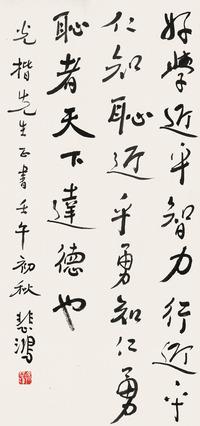 好學近乎智力行近乎
仁知恥近乎勇知仁勇
恥者天下達德也
光楷先生正書壬午初秋 悲鴻